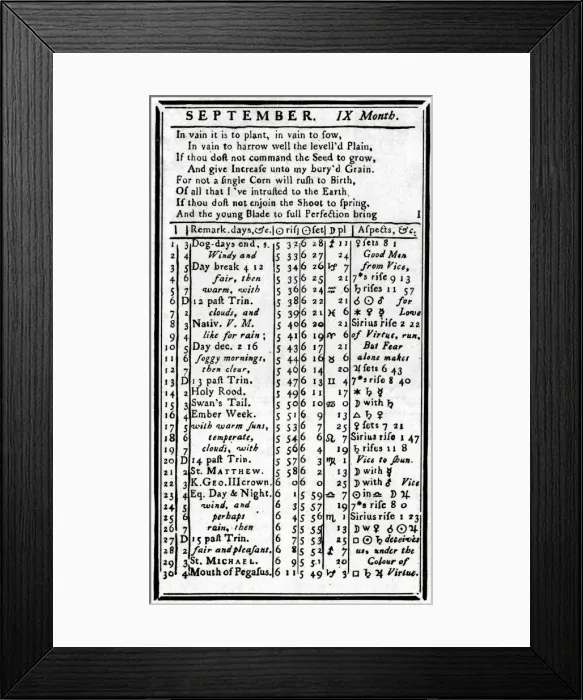 SEPTEMBER. IX Month.
In vain it is to plant, in vain to ſow,
In vain to harrow well the levell'd Plain,
If thou doſt not command the Seed to grow,
And give Increaſe unto my bury'd Grain.
For not a ſingle Corn will ruſh to Birth,
Of all that I've intruſted to the Earth,
If thou doſt not enjoin the Shoot to ſpring,
And the young Blade to full Perfection bring I
Remark. days, &c. ☉ riſ ☉ ſet ☽ pl Aſpects, &c.
1 3 Dog-days end. 5 32 6 28 ♐ 11 ♀ ſets 8 1
2 4 Windy and 5 33 6 27 24 Good Men
3 5 Day break 4 12 5 34 6 26 ♑ 7 from Vice,
4 6 fair, then 5 35 6 25 21 7*s riſe 9 13
5 7 warm, with 5 36 6 24 ♒ 6 ♄ riſes 11 57
6 D 12 paſt Trin. 5 38 6 22 21 ☌ ☉ ♂ for
7 2 clouds, and 5 39 6 21 ♓ 6 ✶ ♀ ☿ Love
8 3 Nativ. V. M. 5 40 6 20 21 Sirius riſe 2 22
9 4 like for rain; 5 41 6 19 ♈ 6 of Virtue, run.
10 5 Day dec. 2 16 5 43 6 17 21 But Fear
11 6 foggy mornings, 5 44 6 16 ♉ 6 alone makes
12 7 then clear, 5 46 6 14 20 ♃ ſets 6 43
13 D 13 paſt Trin. 5 47 6 13 ♊ 4 7*s riſe 8 40
14 2 Holy Rood. 5 49 6 11 17 ✶ ♄ ☿
15 3 Swan's Tail. 5 50 6 10 ♋ 0 ☽ with ♄
16 4 Ember Week. 5 51 6 9 13 △ ♄ ♀
17 5 with warm ſuns, 5 53 6 7 25 ♀ ſets 7 21
18 6 temperate, 5 54 6 6 ♌ 7 Sirius riſe 1 47
19 7 clouds, with 5 56 6 4 19 ♄ riſes 11 8
20 D 14 paſt Trin. 5 57 6 3 ♍ 1 Vice to ſhun.
21 2 St. MATTHEW. 5 58 6 2 13 ☽ with ☿
22 3 K. Geo. III crown. 6 0 6 0 25 ☽ with ♂ Vice
23 4 Eq. Day & Night. 6 1 5 59 ♎ 7 ☉ in ♎ ☽ ♃
24 5 wind, and 6 3 5 57 19 7*s riſe 8 0
25 6 perhaps 6 4 5 56 ♏ 1 Sirius riſe 1 23
26 7 rain, then 6 5 5 55 13 ☽ w ♀ ☌ ☉ ♃
27 D 15 paſt Trin. 6 7 5 53 25 □ ☉ ♄ deceives
28 2 fair and pleaſant. 6 8 5 52 ♐ 7 us, under the
29 3 St. MICHAEL. 6 9 5 51 20 Colour of
30 4 Mouth of Pegaſus. 6 11 5 49 ♑ 3 □ ♄ ♃ Virtue.